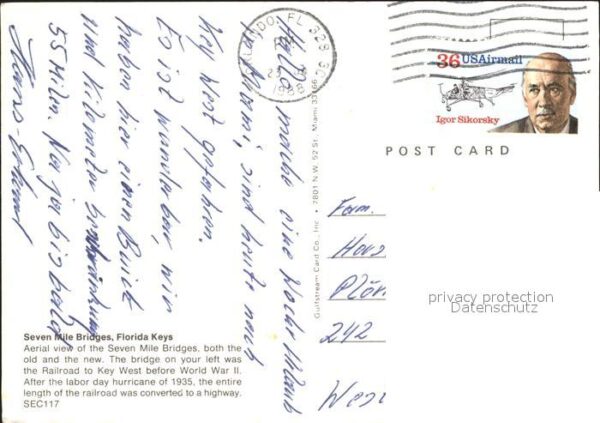 Hallo, mache eine Woche Urlaub
in Miami, sind heute nach
Key West gefahren.
Es ist wunderbar, wir
haben hier einen Buick
und Kilometer
55 Milen. Na ja bis bald
Hans-
ORLANDO, FL 328
1988
36 USAirmail
Igor Sikorsky
POST CARD
Gulfstream Card Co., Inc. • 7801 N.W. 52 St. Miami 33166
Fam.
Plön
242
privacy protection
Datenschutz
Seven Mile Bridges, Florida Keys
Aerial view of the Seven Mile Bridges, both the
old and the new. The bridge on your left was
the Railroad to Key West before World War II.
After the labor day hurricane of 1935, the entire
length of the railroad was converted to a highway.
SEC117